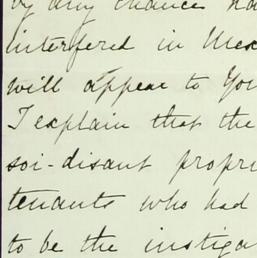 by any chance ha
interfered in Mex
will appear to You
I explain that the
soi-disant propri
tenants who had
to be the instiga